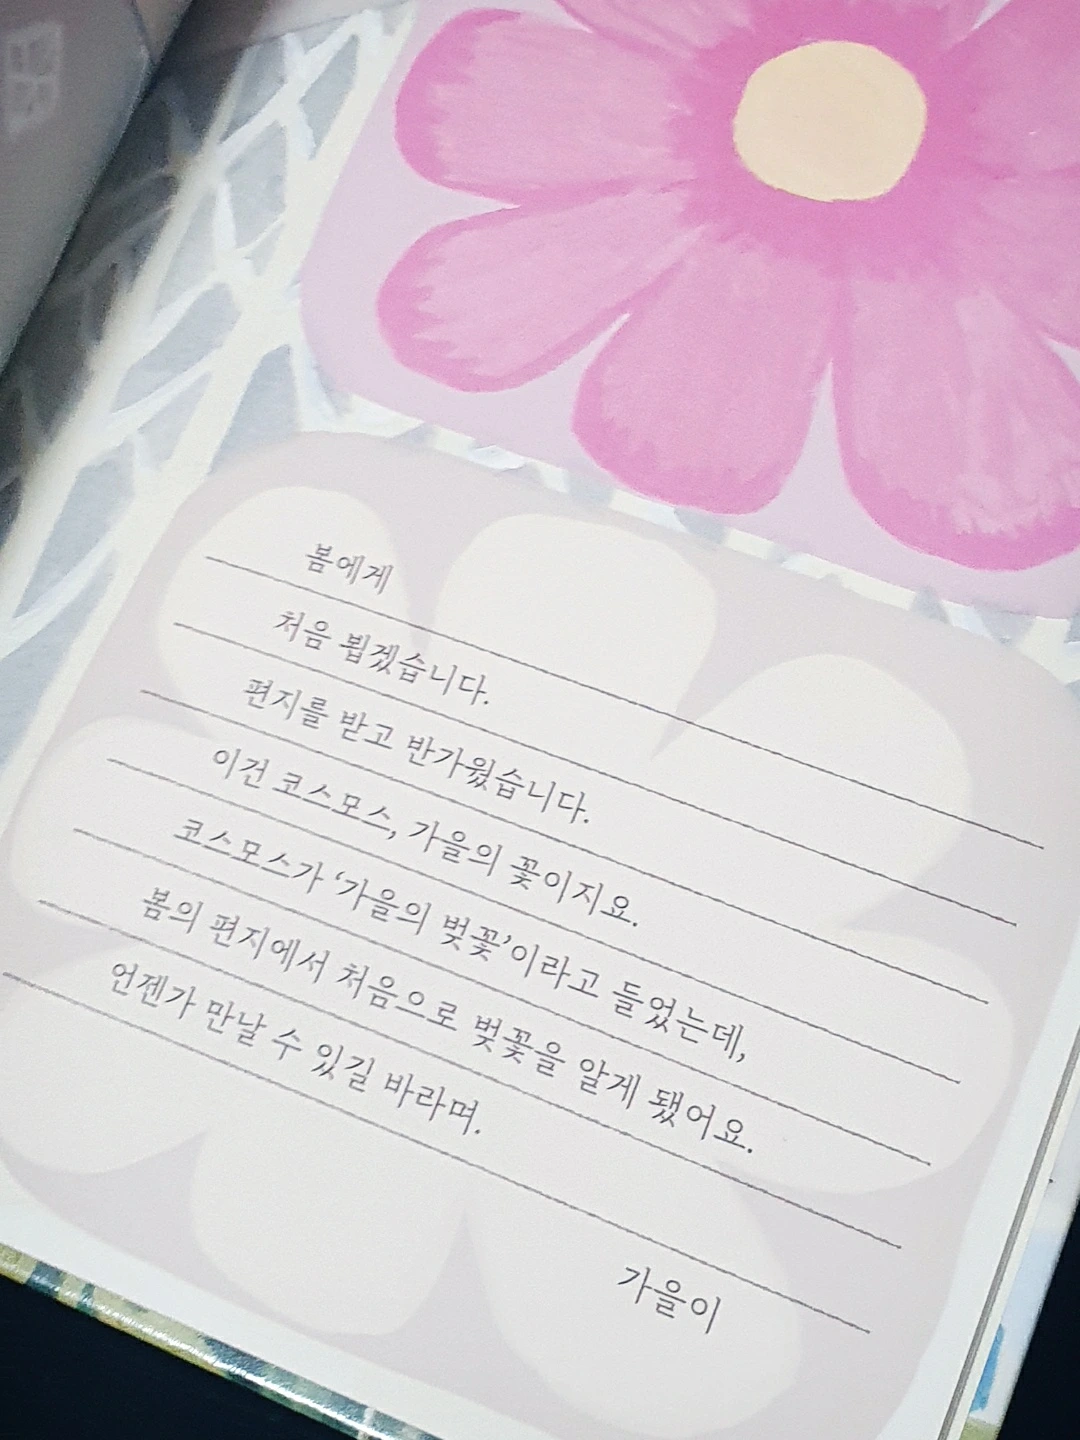 봄에게
처음 뵙겠습니다.
편지를 받고 반가웠습니다.
이건 코스모스, 가을의 꽃이지요.
코스모스가 ‘가을의 벚꽃’이라고 들었는데,
봄의 편지에서 처음으로 벚꽃을 알게 됐어요.
언젠가 만날 수 있길 바라며.
가을이